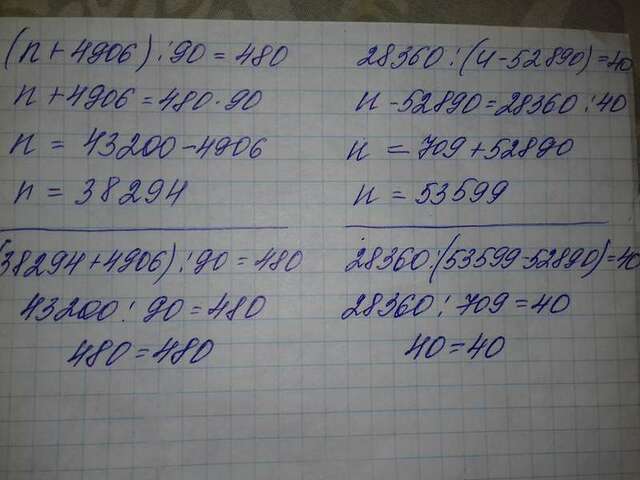 (n + 4906) : 90 = 480
n + 4906 = 480 · 90
n = 43200 - 4906
n = 38294
(38294 + 4906) : 90 = 480
43200 : 90 = 480
480 = 480
28360 : (n - 52890) = 40
n - 52890 = 28360 : 40
n = 709 + 52890
n = 53599
28360 : (53599 - 52890) = 40
28360 : 709 = 40
40 = 40